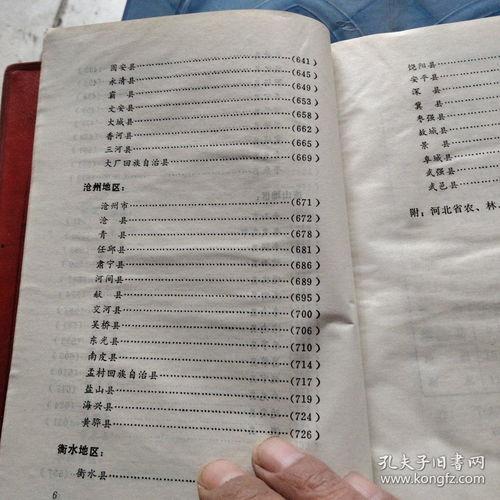 固安县………(641)
永清县………(645)
霸　县………(649)
文安县………(653)
大城县………(658)
香河县………(662)
三河县………(665)
大厂回族自治县………(669)
沧州地区：
沧州市………(671)
沧　县………(672)
青　县………(678)
任邱县………(681)
肃宁县………(686)
河间县………(689)
献　县………(695)
交河县………(700)
吴桥县………(706)
东光县………(710)
南皮县………(714)
孟村回族自治县………(717)
盐山县………(719)
海兴县………(724)
黄骅县………(726)
衡水地区：
衡水县………
6
饶阳县………
安平县………
深　县………
冀　县………
枣强县………
故城县………
景　县………
阜城县………
武强县………
武邑县………
附：河北省农、林、
孔夫子旧书网